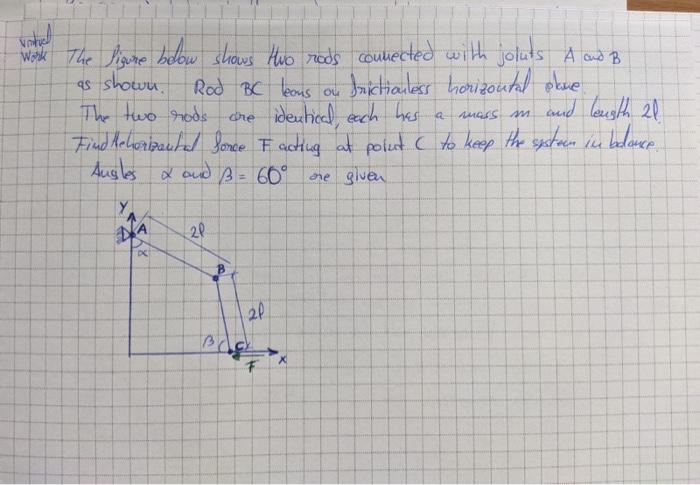 Virtual
Work
The figure below shows two rods connected with joints A and B
as shown. Rod BC leans on frictionless horizontal plane.
The two rods are identical, each has a mass m and length 2l.
Find the horizontal force F acting at point C to keep the system in balance.
Angles α and β = 60° are given
Y
A
2l
α
B
2l
β
C
F
x